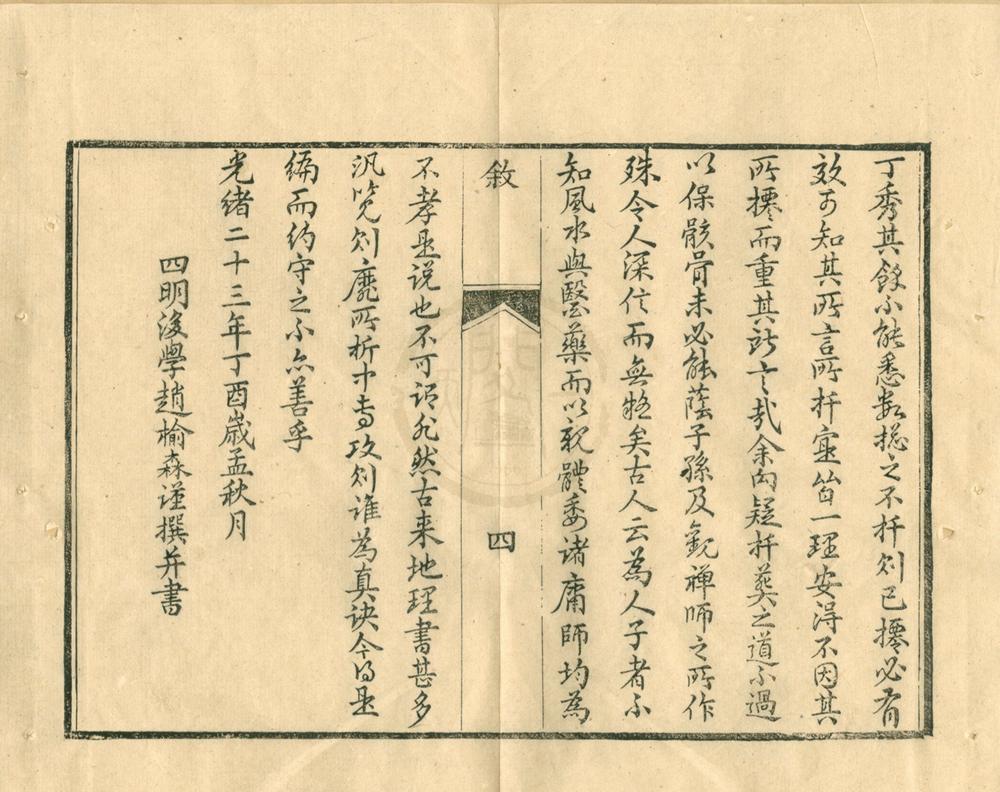 丁秀其餘不能悉數揔之不扦則已必有
效可知其所言所扦寔皆一理安得不因其
所而重其所言哉余向疑扦葬之道不過
以保骸骨未必能蔭子孫及觀禪師之所作
殊令人深信而無疑矣古人云為人子者不
知風水與醫藥而以親體委諸庸師均為
敘
四
不孝是說也不可謂然古来地理書甚多
汎覽則靡所折中專攻則誰為真訣今得是
編而約守之不亦善乎
光緒二十三年丁酉歲孟秋月
四明後學趙榆森謹撰并書